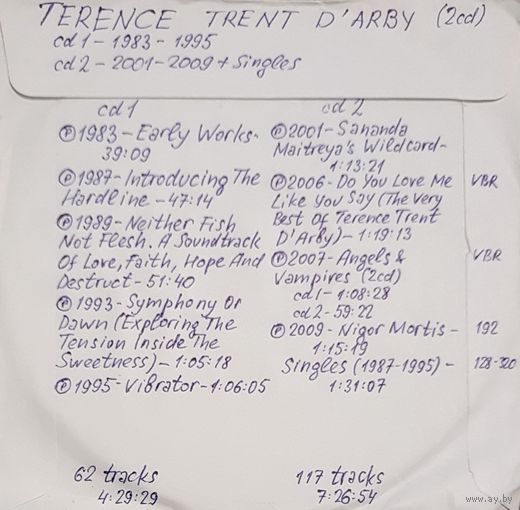 TERENCE TRENT D'ARBY (2cd)
cd 1 - 1983 - 1995
cd 2 - 2001-2009 + Singles
cd 1
Ⓟ1983 - Early Works -
39:09
Ⓟ1987 - Introducing The
Hardline - 47:14
Ⓟ1989 - Neither Fish
Not Flesh. A Soundtrack
Of Love, Faith, Hope And
Destruct - 51:40
Ⓟ1993 - Symphony Or
Dawn (Exploring The
Tension Inside The
Sweetness) - 1:05:18
Ⓟ1995 - Vibrator - 1:06:05
62 tracks
4:29:29
cd 2
Ⓟ2001 - Sananda
Maitreya's Wildcard -
1:13:21
Ⓟ2006 - Do You Love Me VBR
Like You Say (The Very
Best Of Terence Trent
D'Arby) - 1:19:13
Ⓟ2007 - Angels & VBR
Vampires (2cd)
cd 1 - 1:08:28
cd 2 - 59:22
Ⓟ2009 - Nigor Mortis - 192
1:15:19
Singles (1987-1995) - 128-320
1:31:07
117 tracks
7:26:54
www.ay.by